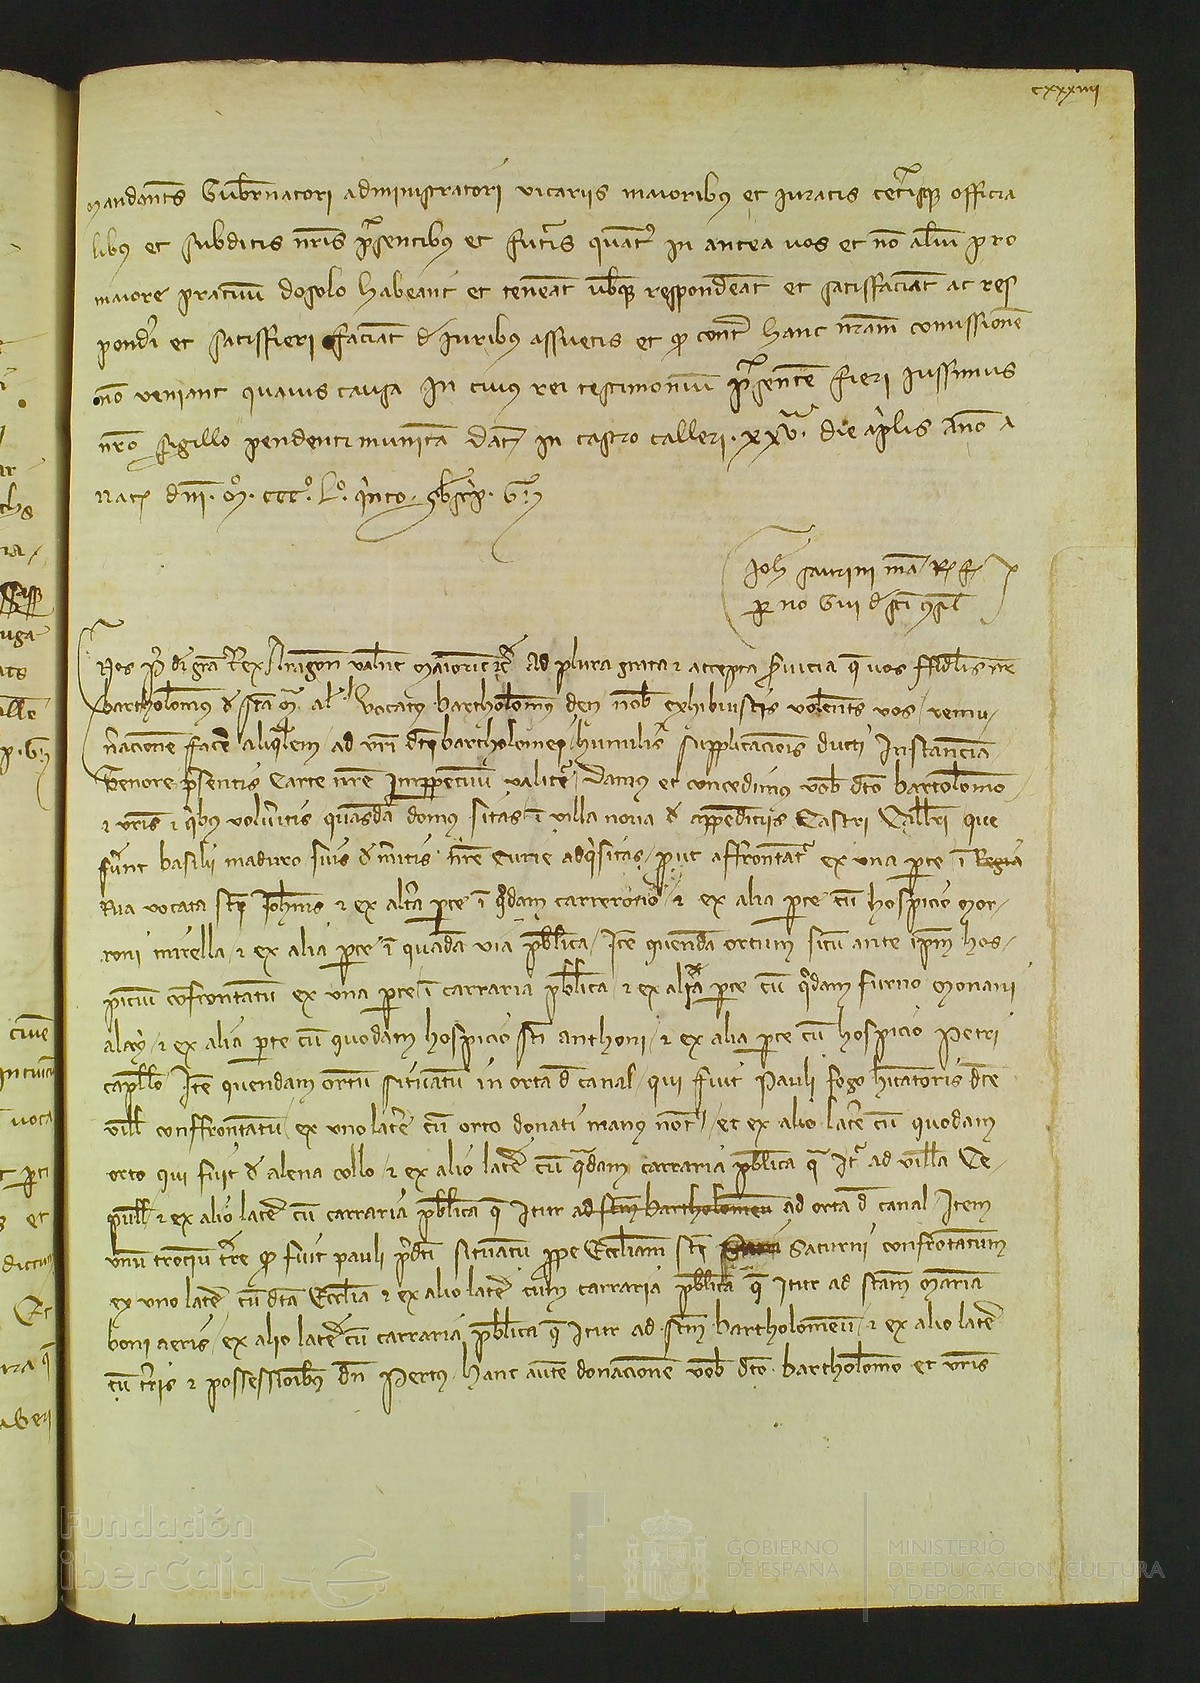 cxxxiiii
mandants Gubernatori administratori vicariis maioribus et iuratis ceterisque officia
libus et subditis nris presentibus et futuris quatenus in antea vos et no alium pro
maiore dosolo habeant et teneant vobisque respondeant et satisfaciant ac res
ponderi et satisfieri faciant de iuribus assuetis et contra hanc nram comissionem
no veniant quavis causa In cuius rei testimonium presentem fieri iussimus
nro sigillo pendenti munitam Dat in castro calleri . xxv . die aprilis Ano a
nat dni . M . ccc . Lo . quinto .
Joh mand R
per no
Nos P dei gra Rex Aragon Valenc Maioric etc Ad plura grata et accepta servicia que vos fidelis nr
bartholomeus de sta vocatus bartholomeus den nobis exhibuistis volents vos / remu /
neracionem facere aliqualem / ad vri dti bartholomei / humilis supplicacionis ducti Instanciam
Tenore presentis Carte nre Imperpetuum valiture / Damus et concedimus vob dto bartolomeo /
et vris et quibus volueritis quasdam domus sitas in villa nova de appendiciis Castri Calleri que
fuerunt basilii maduro suis demeritis nre Curie adquisitas / prout affrontatur ex una parte in Regia
Rua vocata sti Iohannis et ex altera parte in quodam carrerotio / et ex alia parte cum hospicio mor /
roni mirella / et ex alia parte in quadam via publica / Item quendam ortum situm ante ipm hos /
picium confrontatum ex una parte in carraria publica et ex alia parte cum quodam furno monani
alaxy / et ex alia parte cum quodam hospicio sti anthoni / et ex alia parte cum hospicio Petri
capello Item quendam ortum situatum in orta de canal / qui fuit Pauli fogo habitatoris dte
ville confrontatum / ex uno latere cum orto donati manus not / et ex alio latere cum quodam
orto qui fuit de alena collo / et ex alio latere cum quadam carraria publica qua Itur ad villa Ce /
pulle et ex alio latere cum carraria publica qua Itur ad stm bartholomeum ad orta de canal Item
unum trocium terre quod fuit pauli predti situatum prope Eccliam sti Saturni confrontatum
ex uno latere cum dta Ecclia et ex alio latere cum carraria publica qua Itur ad stam Maria
boni aeris / ex alio latere cum carraria publica qua Itur ad stm bartholomeum / et ex alio latere
cum terris et possessionibus den Pertus . Hanc autem donacionem vob dto . bartholomeo et vris
Fundación
iberCaja
GOBIERNO
DE ESPAÑA
MINISTERIO
DE EDUCACIÓN, CULTURA
Y DEPORTE